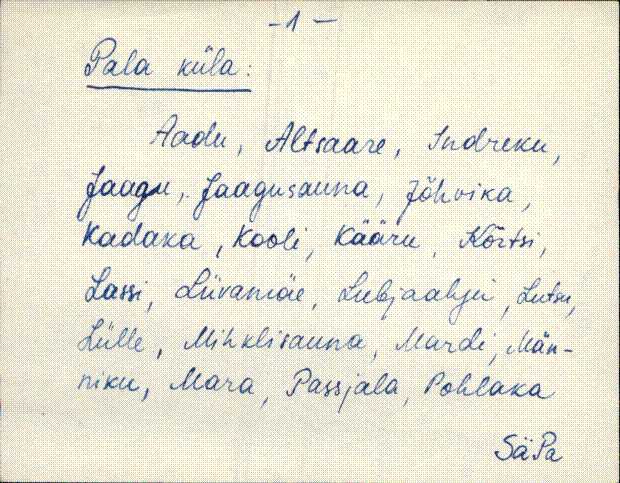 - 1 -
Pala küla:
Aadu, Altsaare, Indreku,
Jaagu, Jaagusauna, Jõhvika,
Kadaka, Kooli, Kääru, Kõrtsi,
Lassi, Liivamäe, Lubjaahju, Lutsu,
Lülle, Mihklisauna, Mardi, Män-
niku, Mara, Passjala, Pohlaka
SäPa